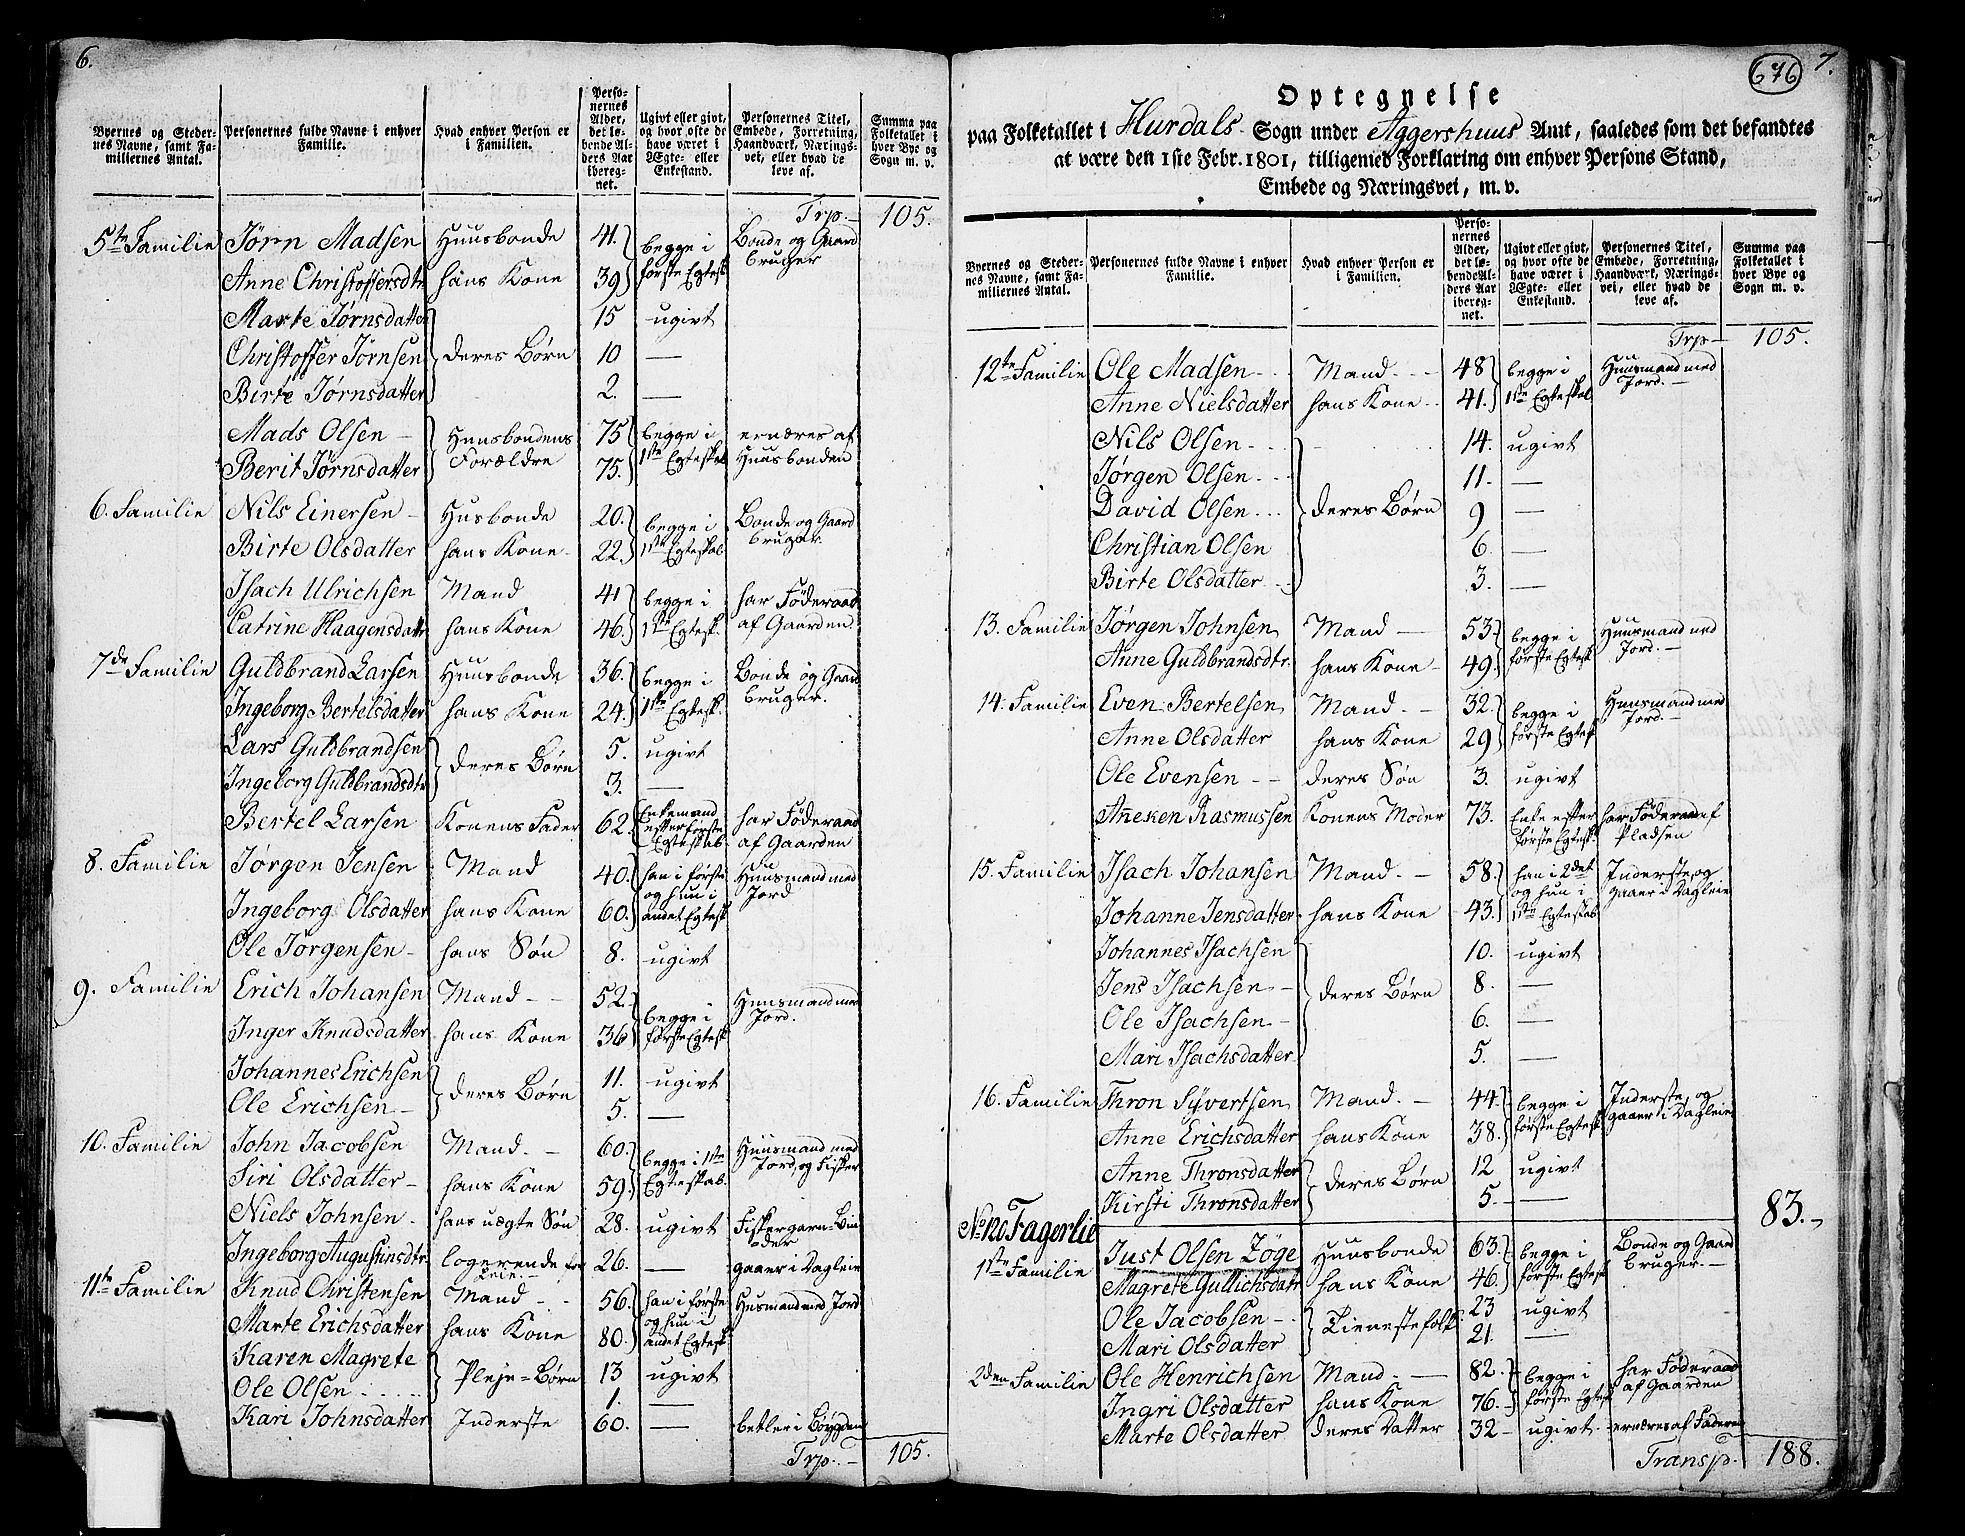 6.
Byernes og Steder-
nes Navne, samt Fa-
miliernes Antal.
Personernes fulde Navne i enhver
Familie.
Hvad enhver Person er
i Familien.
Perso-
nernes
Alder,
det lø-
bende Al-
ders Aar
ibereg-
net.
Ugivt eller givt,
og hvor ofte de
have været i
Ægte- eller
Enkestand.
Personernes Titel,
Embede, Forretning,
Haandværk, Nærings-
vei, eller hvad de
leve af.
Summa paa
Folketallet i
hver Bye og
Sogn m. v.
Trp.— 105.
5te Familie Jørn Madsen Huusbonde 41. begge i første Egtesk Bonde og Gaard bruger
Anne Christoffersdtr hans Kone 39
Marte Jørnsdatter deres Børn 15 ugivt
Christoffer Jørnsen 10 —
Birte Jørnsdatter 2. —
Mads Olsen — Huusbondens Forældre 75 begge i 1ste Egteskab ernæres af Huusbonden
Berit Jørnsdatter 75.
6. Familie Nils Einersen — Husbonde 20. begge i 1ste Egteskab Bonde og Gaard bruger
Birte Olsdatter hans Kone. 22.
Isach Ulrichsen Mand 41 begge i 1ste Egtesk. har Føderaad af Gaarden.
Catrine Haagensdatr hans Kone 46.
7de Familie Guldbrand Larsen Huusbonde 36. begge i 1ste Egtesk. Bonde og Gaard bruger.
Ingeborg Bertelsdatter hans Kone 24.
Lars Guldbrandsen deres Børn 5. ugivt
Ingeborg Guldbrandsdtr 3. —
Bertel Larsen Konens Fader 62. Enkemand efter første Egteskab har Føderaad af Gaarden
8. Familie Jørgen Jensen Mand 40. han i første og hun i andet Egtesk Huusmand med Jord
Ingeborg Olsdatter hans Kone 60.
Ole Jørgensen — hans Søn 8. ugivt
9. Familie Erich Johansen Mand — 52. begge i første Egtesk Huusmand med Jord.
Inger Knudsdatter hans Kone 36
Johannes Erichsen deres Børn 11. ugivt
Ole Erichsen — 5. —
10. Familie John Jacobsen Mand. — 60. begge i 1ste Egteskab. Huusmand med Jord, og Fisker
Siri Olsdatter — hans Kone 59.
Niels Johnsen. hans uægte Søn 28. ugivt Fiskergarn=Bin
Ingeborg Augustinsdtr. logerende 26. — gaaer i Dagleie
11te Familie Knud Christensen Mand — 56. han i første og hun i andet Egtesk. Husmand med Jord
Marte Erichsdatter hans Kone 80.
Karen Magrete Pleje=Børn 13 ugivt
Ole Olsen 1. —
Kari Johnsdatter Inderste 60. — betler i Bygden
Trp. — 105.
676 7.
Optegnelse
paa Folketallet i Hurdals Sogn under Aggershuus Amt, saaledes som det befandtes
at være den 1ste Febr. 1801, tilligemed Forklaring om enhver Persons Stand,
Embede og Næringsvei, m. v.
Byernes og Steder-
nes Navne, samt Fa-
miliernes Antal.
Personernes fulde Navne i enhver
Familie.
Hvad enhver Person er
i Familien.
Perso-
nernes
Alder,
det lø-
bende Al-
ders Aar
ibereg-
net.
Ugivt eller givt,
og hvor ofte de
have været i
Ægte- eller
Enkestand.
Personernes Titel,
Embede, Forretning,
Haandværk, Nærings-
vei, eller hvad de
leve af.
Summa paa
Folketallet i
hver Bye og
Sogn m. v.
Trp — 105.
12te Familie Ole Madsen Mand. 48 begge i 1ste Egteskab Huusmand med Jord. —
Anne Nielsdatter hans Kone 41.
Nils Olsen deres Børn 14. ugivt
Jørgen Olsen 11. —
David Olsen 9 —
Christian Olsen 6. —
Birte Olsdatter 3. —
13. Familie Jørgen Johnsen Mand — 53. begge i første Egtesk Huusmand med Jord. —
Anne Guldbrandsdtr. hans Kone — 49.
14. Familie Even Bertelsen Mand. — 32. begge i første Egtesk Huusmand med Jord. —
Anne Olsdatter hans Kone 29
Ole Evensen — deres Søn 3. ugivt
Anneken Rasmussen Konens Moder 73. Enke efter første Egtesk. har Føderaad af Pladsen
15. Familie Isach Johansen Mand. — 58. han i 2det og hun i 1ste Egteskab Inderste, og gaaer i Dagleie
Johanne Jensdatter hans Kone 43.
Johannes Isachsen deres Børn 10. ugivt
Jens Isachsen — 8. —
Ole Isachsen — 6. —
Mari Isachsdatter 5. —
16. Familie Thron Syvertsen Mand. — 44. begge i første Egtesk Inderste, og gaaer i Dagleie
Anne Erichsdatter hans Kone 38.
Anne Thronsdatter deres Børn 12 ugivt
Kirsti Thronsdatter 5. — 83.
No 120 Fagerlie
1ste Familie Just Olsen Zøge Huusbonde 63. begge i første Egtesk Bonde og Gaard bruger. —
Magrete Gullichsdatr hans Kone 46.
Ole Jacobsen — Tienestefolk 23 ugivt
Mari Olsdatter 21. —
2den Familie Ole Henrichsen Mand. — 82. begge i første Egtesk har Føderaad af Gaarden
Ingri Olsdatter hans Kone 76.
Marte Olsdatter deres Datter 32 ugivt. ernæres af Faderen
Transp. 188.